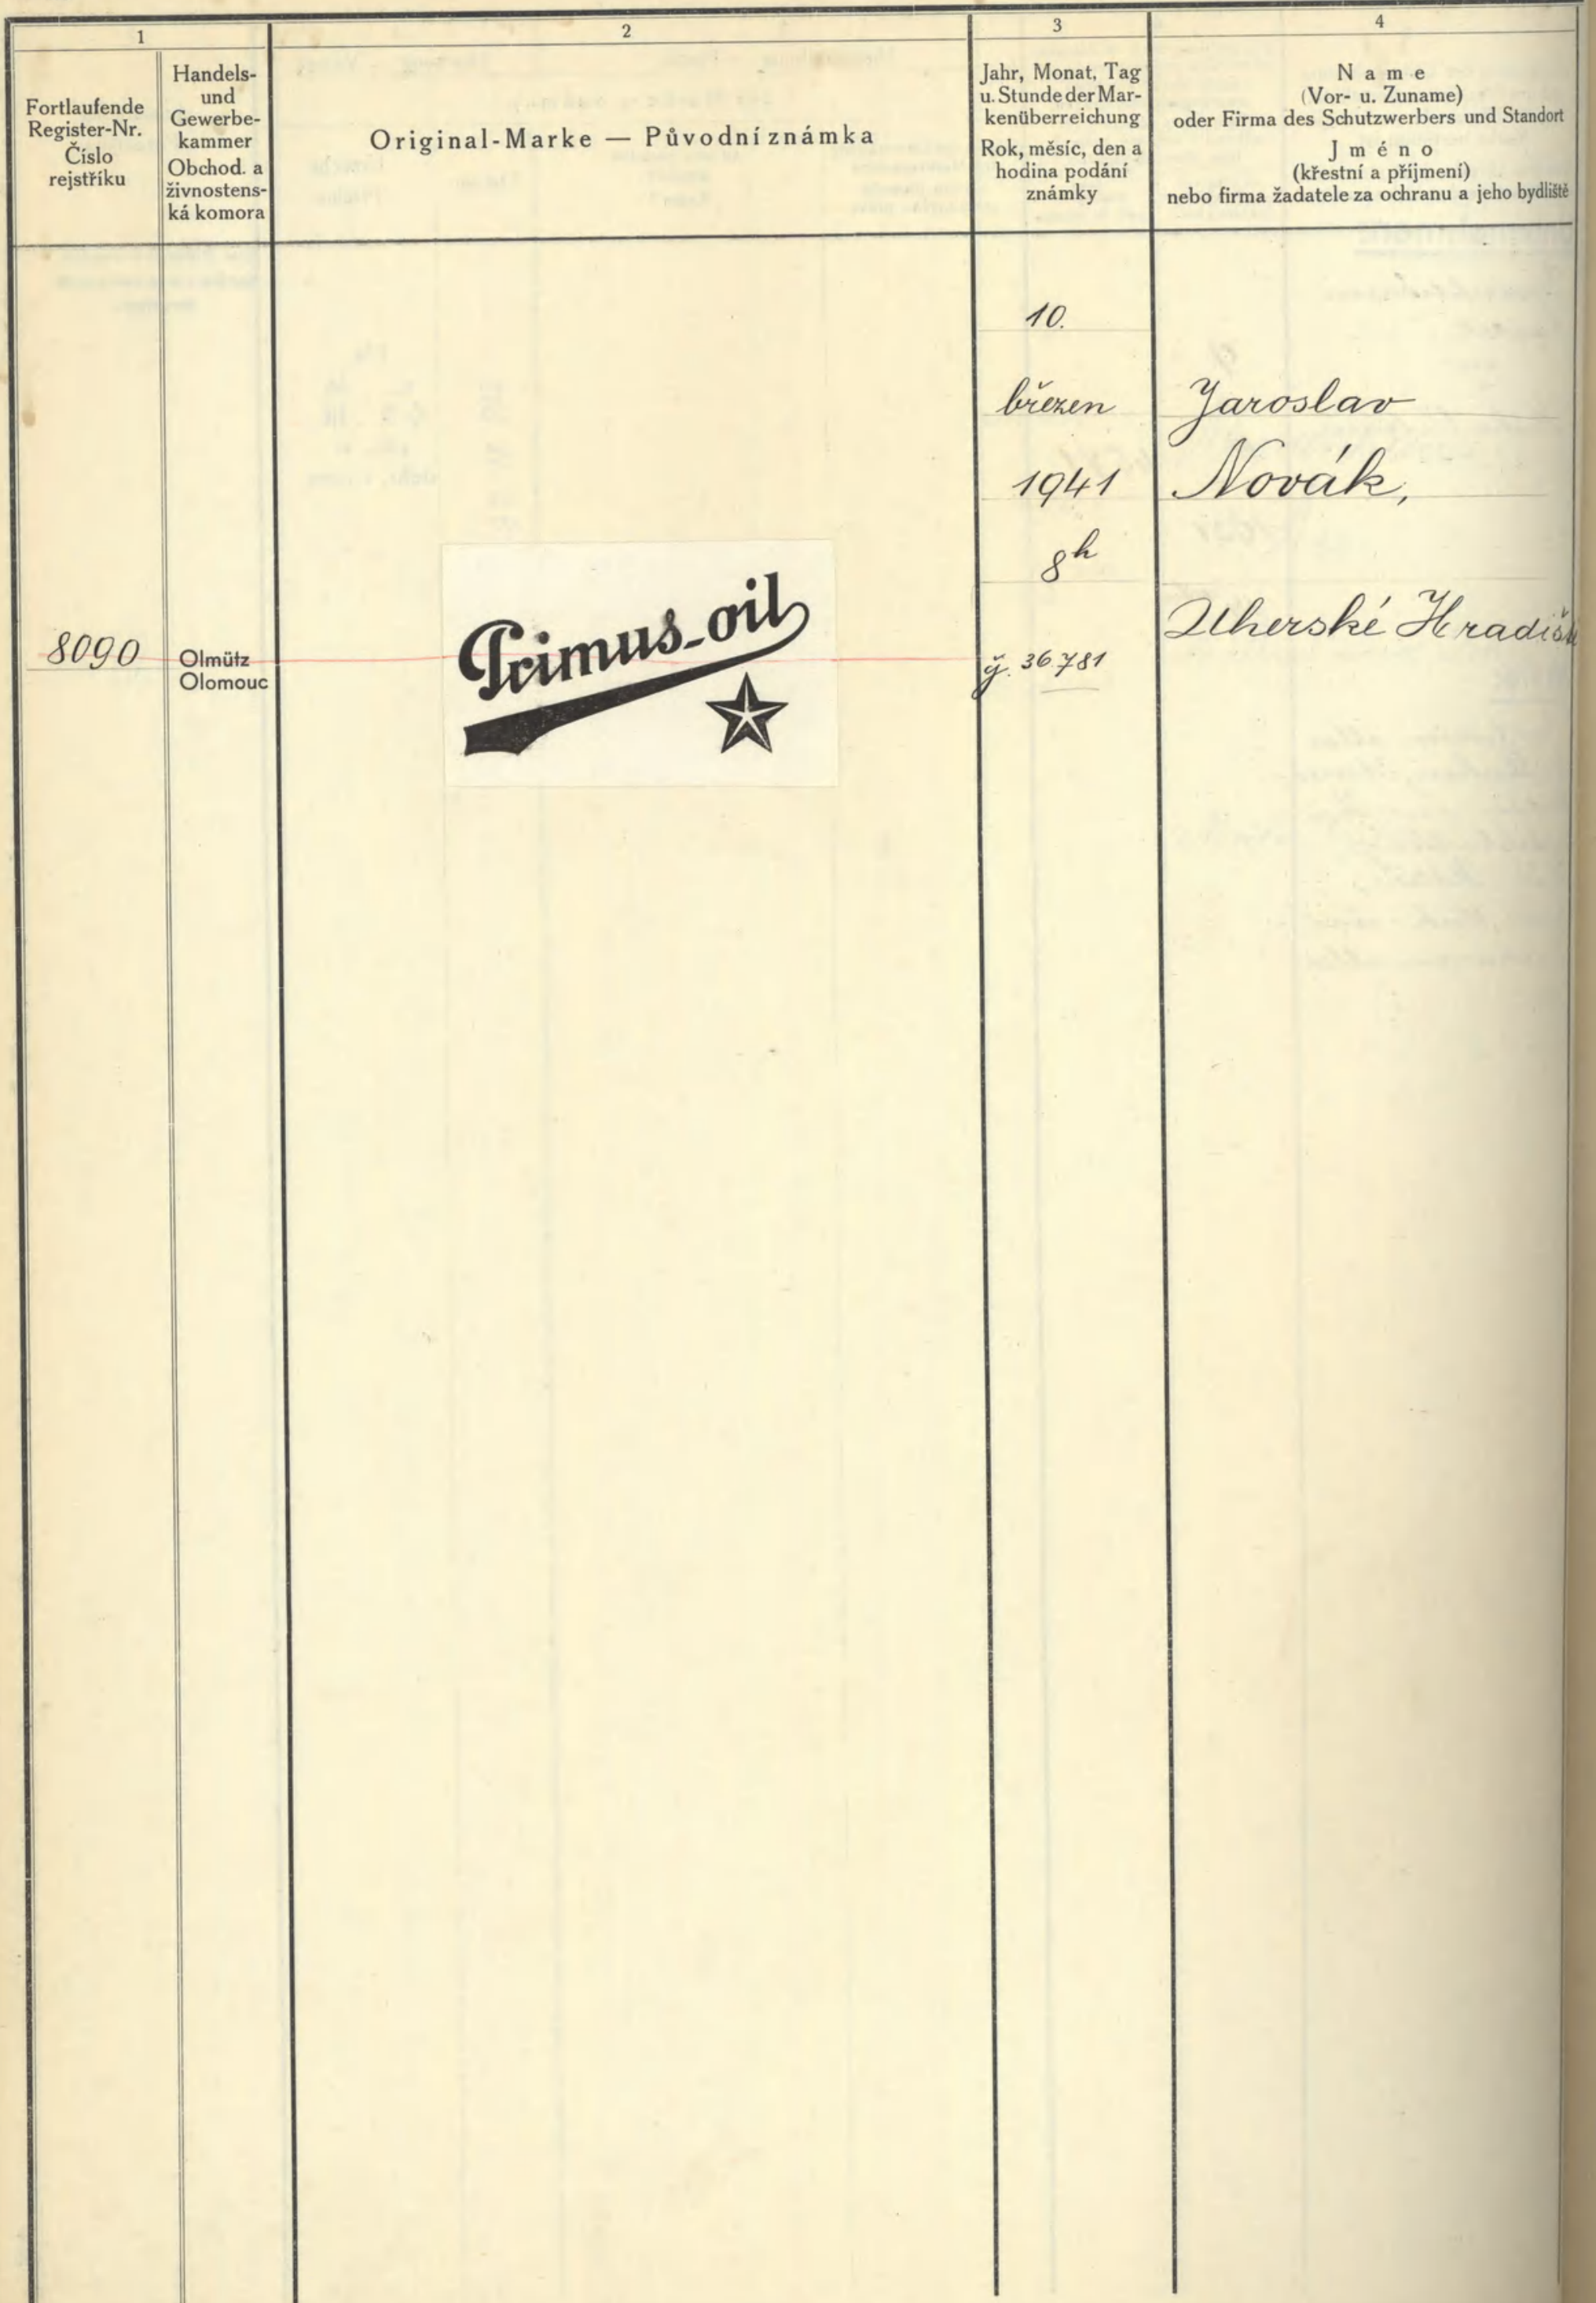 1
2
3
4
Fortlaufende
Register-Nr.
Číslo
rejstříku
Handels-
und
Gewerbe-
kammer
Obchod. a
živnostens-
ká komora
Original-Marke — Původní známka
Jahr, Monat, Tag
u. Stunde der Mar-
kenüberreichung
Rok, měsíc, den a
hodina podání
známky
Name
(Vor- u. Zuname)
oder Firma des Schutzwerbers und Standort
Jméno
(křestní a příjmení)
nebo firma žadatele za ochranu a jeho bydliště
8090
Olmütz
Olomouc
Primus-oil
10.
březen
1941
8h
36.781
Jaroslav
Novák,
Uherské